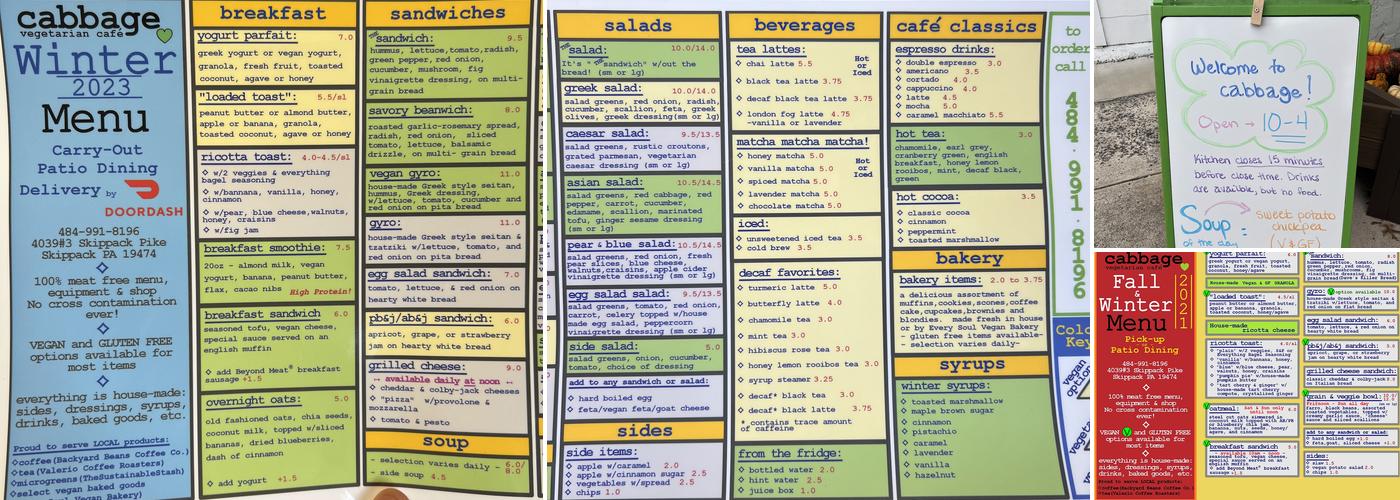 cabbage
vegetarian café
Winter
2023
Menu
Carry-Out
Patio Dining
Delivery by
DOORDASH
484-991-8196
4039#3 Skippack Pike
Skippack PA 19474
100% meat free menu,
equipment & shop
No cross contamination
ever!
VEGAN and GLUTEN FREE
options available for
most items
everything is house-made:
sides, dressings, syrups,
drinks, baked goods, etc.
Proud to serve LOCAL products:
coffee(Backyard Beans Coffee Co.)
tea(Valerio Coffee Roasters)
microgreens(TheSustainableStash)
select vegan baked goods
Vegan Bakery)
breakfast
yogurt parfait: 7.0
greek yogurt or vegan yogurt,
granola, fresh fruit, toasted
coconut, agave or honey
"loaded toast": 5.5/sl
peanut butter or almond butter,
apple or banana, granola,
toasted coconut, agave or honey
ricotta toast: 4.0-4.5/sl
w/2 veggies & everything
bagel seasoning
w/bannana, vanilla, honey,
cinnamon
w/pear, blue cheese,walnuts,
honey, craisins
w/fig jam
breakfast smoothie: 7.5
20oz - almond milk, vegan
yogurt, banana, peanut butter,
flax, cacao nibs High Protein!
breakfast sandwich 6.0
seasoned tofu, vegan cheese,
special sauce served on an
english muffin
add Beyond Meat® breakfast
sausage +1.5
overnight oats: 5.0
old fashioned oats, chia seeds,
coconut milk, topped w/sliced
bananas, dried blueberries,
dash of cinnamon
add yogurt +1.5
sandwiches
THE sandwich: 9.5
hummus, lettuce,tomato,radish,
green pepper, red onion,
cucumber, mushroom, fig
vinaigrette dressing, on multi-
grain bread
savory beanwich: 8.0
roasted garlic-rosemary spread,
radish, red onion, sliced
tomato, lettuce, balsamic
drizzle, on multi- grain bread
vegan gyro: 11.0
house-made Greek style seitan,
hummus, Greek dressing,
w/lettuce, tomato, cucumber and
red onion on pita bread
gyro: 11.0
house-made Greek style seitan,
tzatziki w/lettuce, tomato, and
red onion on pita bread
egg salad sandwich: 7.0
tomato, lettuce, & red onion on
hearty white bread
pb&j/ab&j sandwich: 6.0
apricot, grape, or strawberry
jam on hearty white bread
grilled cheese: 9.0
-- available daily at noon --
cheddar & colby-jack cheeses
"pizza" w/provolone &
mozzarella
tomato & pesto
soup
- selection varies daily - 6.0/
8.0
- side soup 4.5
salads
THE salad: 10.0/14.0
It's "THE sandwich" w/out the
bread! (sm or lg)
greek salad: 10.0/14.0
salad greens, red onion, radish,
cucumber, scallion, feta, greek
olives, greek dressing(sm or lg)
caesar salad: 9.5/13.5
salad greens, rustic croutons,
grated parmesan, vegetarian
caesar dressing (sm or lg)
asian salad: 10.5/14.5
salad greens, red cabbage, red
pepper, carrot, cucumber,
edamame, scallion, marinated
tofu, ginger sesame dressing
(sm or lg)
pear & blue salad: 10.5/14.5
salad greens, red onion, fresh
pear slices, blue cheese,
walnuts,craisins, apple cider
vinaigrette dressing (sm or lg)
egg salad salad: 9.5/13.5
salad greens, tomato, red onion,
carrot, celery topped w/house
made egg salad, peppercorn
vinaigrette dressing (sm or lg)
side salad: 5.0
salad greens, onion, cucumber,
tomato, choice of dressing
add to any sandwich or salad:
hard boiled egg
feta/vegan feta/goat cheese
sides
side items:
apple w/caramel 2.0
apple w/cinnamon sugar 2.5
vegetables w/spread 2.5
chips 1.0
beverages
tea lattes:
chai latte 5.5
Hot
or
Iced
black tea latte 3.75
decaf black tea latte 3.75
london fog latte 4.75
-vanilla or lavender
matcha matcha matcha!
honey matcha 5.0
vanilla matcha 5.0
spiced matcha 5.0
lavender matcha 5.0
chocolate matcha 5.0
Hot
or
Iced
iced:
unsweetened iced tea 3.5
cold brew 3.5
decaf favorites:
turmeric latte 5.0
butterfly latte 4.0
chamomile tea 3.0
mint tea 3.0
hibiscus rose tea 3.0
honey lemon rooibos tea 3.0
syrup steamer 3.25
decaf* black tea 3.0
decaf* black latte 3.75
* contains trace amount
of caffeine
from the fridge:
bottled water 2.0
hint water 2.5
juice box 1.0
café classics
espresso drinks:
double espresso 3.0
americano 3.5
cortado 4.0
cappuccino 4.0
latte 4.5
mocha 5.0
caramel macchiato 5.5
hot tea: 3.0
chamomile, earl grey,
cranberry green, english
breakfast, honey lemon
rooibos, mint, decaf black,
green
hot cocoa: 3.5
classic cocoa
cinnamon
peppermint
toasted marshmallow
bakery
bakery items: 2.0 to 3.75
a delicious assortment of
muffins,cookies,scones,coffee
cake,cupcakes,brownies and
blondies. made fresh in house
or by Every Soul Vegan Bakery
- gluten free available-
- selection varies daily-
syrups
winter syrups:
toasted marshmallow
maple brown sugar
cinnamon
pistachio
caramel
lavender
vanilla
hazelnut
to
order
call
484·991·8196
Welcome to
cabbage!
Open → 10-4
Kitchen closes 15 minutes
before close time. Drinks
are available, but no food.
Soup =
of the day
sweet potato
chickpea
(V&GF)
cabbage
vegetarian café
Fall
&
Winter
2021
Menu
Pick-up
Patio Dining
484-991-8196
4039#3 Skippack Pike
Skippack PA 19474
100% meat free menu,
equipment & shop
No cross contamination
ever!
VEGAN and GLUTEN FREE
options available for
most items
everything is house-made:
sides, dressings, syrups,
drinks, baked goods, etc.
Proud to serve LOCAL products:
yogurt parfait: 6.0
House-made Vegan & GF GRANOLA
"loaded toast": 4.5/sl
House-made
ricotta cheese
ricotta toast: 4.0/sl
oatmeal:
breakfast sandwich
sandwich:
gyro:
egg salad sandwich:
pb&j/ab&j sandwich:
grilled cheese sandwich:
grain & veggie bowl:
add to any sandwich or salad:
sides: